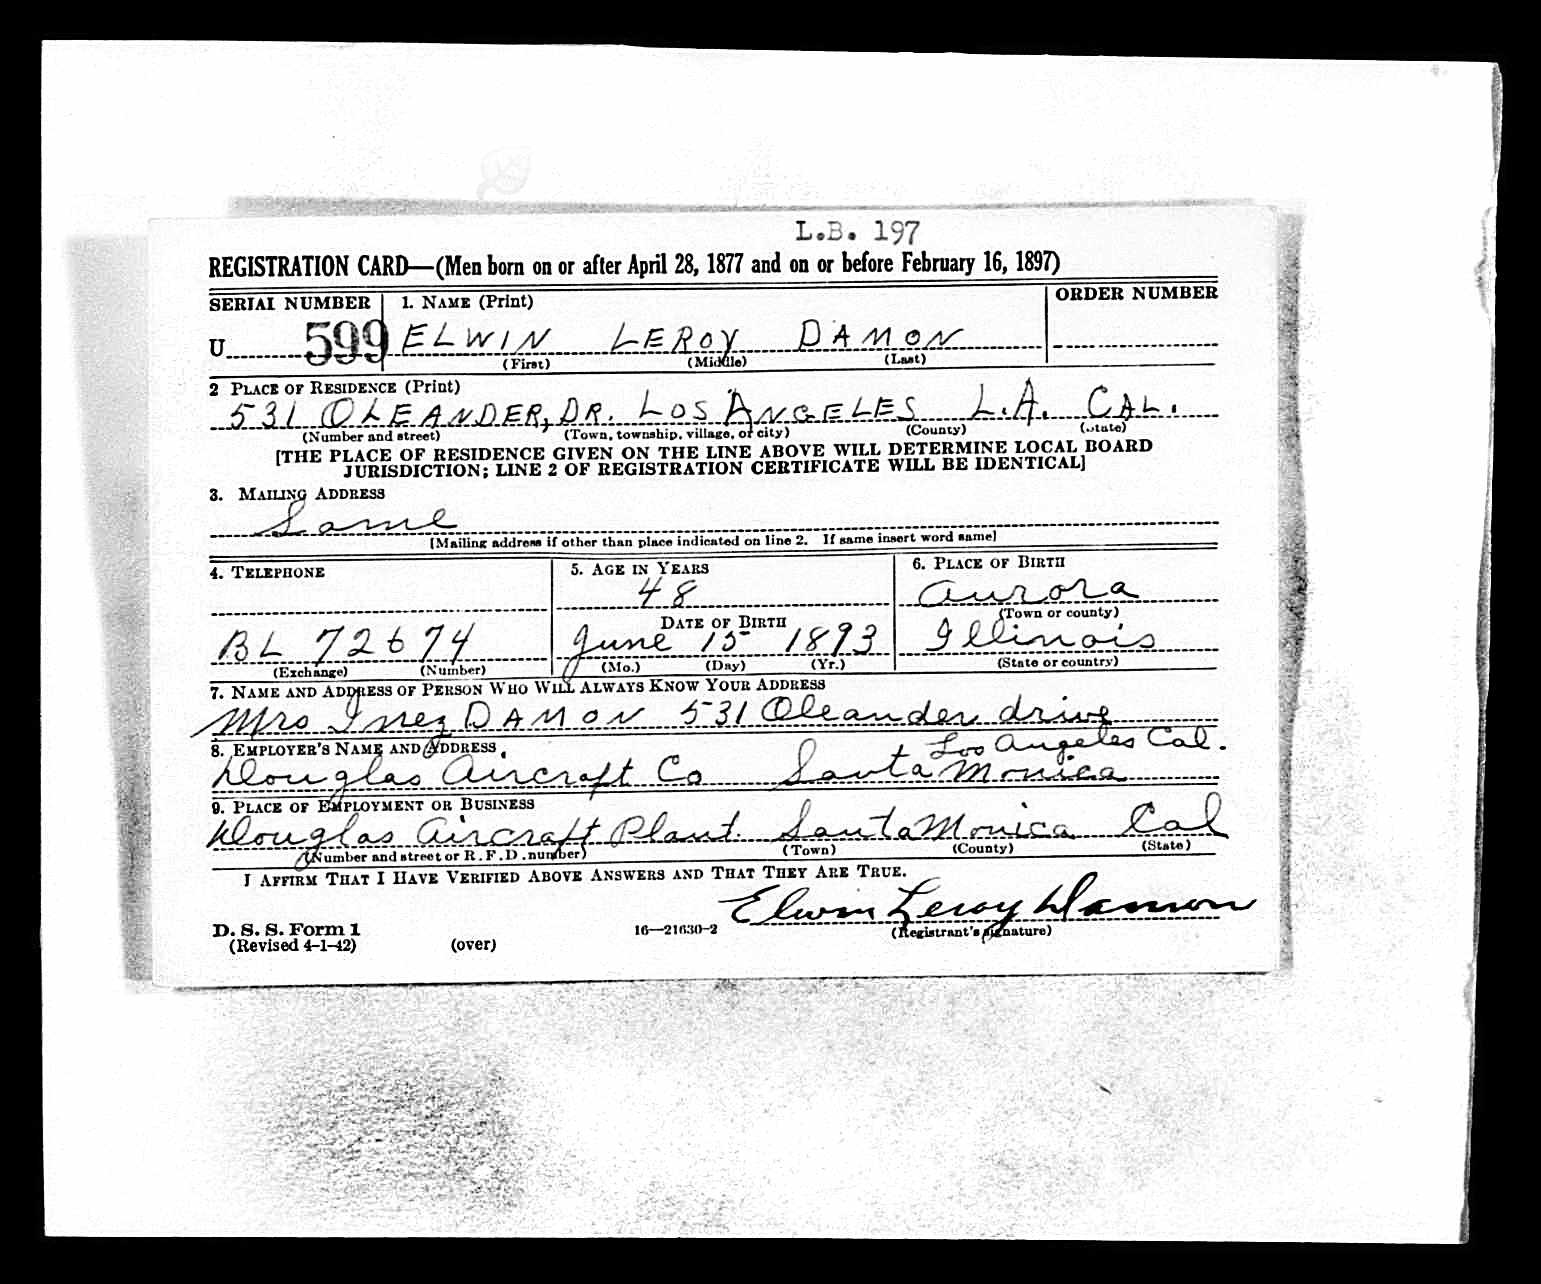 L.B. 197
REGISTRATION CARD—(Men born on or after April 28, 1877 and on or before February 16, 1897)
SERIAL NUMBER 1. NAME (Print) ORDER NUMBER
U 599 ELWIN LEROY DAMON
(First) (Middle) (Last)
2 PLACE OF RESIDENCE (Print)
531 OLEANDER, DR. LOS ANGELES L.A. CAL.
(Number and street) (Town, township, village, or city) (County) (State)
[THE PLACE OF RESIDENCE GIVEN ON THE LINE ABOVE WILL DETERMINE LOCAL BOARD
JURISDICTION; LINE 2 OF REGISTRATION CERTIFICATE WILL BE IDENTICAL]
3. MAILING ADDRESS
Same
[Mailing address if other than place indicated on line 2. If same insert word same]
4. TELEPHONE 5. AGE IN YEARS 6. PLACE OF BIRTH
48 Aurora
DATE OF BIRTH (Town or county)
BL 72674 June 15 1893 Illinois
(Exchange) (Number) (Mo.) (Day) (Yr.) (State or country)
7. NAME AND ADDRESS OF PERSON WHO WILL ALWAYS KNOW YOUR ADDRESS
Mrs Inez DAMON 531 Oleander drive
8. EMPLOYER'S NAME AND ADDRESS Los Angeles Cal.
Douglas Aircraft Co Santa Monica
9. PLACE OF EMPLOYMENT OR BUSINESS
Douglas Aircraft Plant. Santa Monica Cal
(Number and street or R. F. D. number) (Town) (County) (State)
I AFFIRM THAT I HAVE VERIFIED ABOVE ANSWERS AND THAT THEY ARE TRUE.
Elwin Leroy Damon
D. S. S. Form 1 16—21630-2 (Registrant's signature)
(Revised 4-1-42) (over)